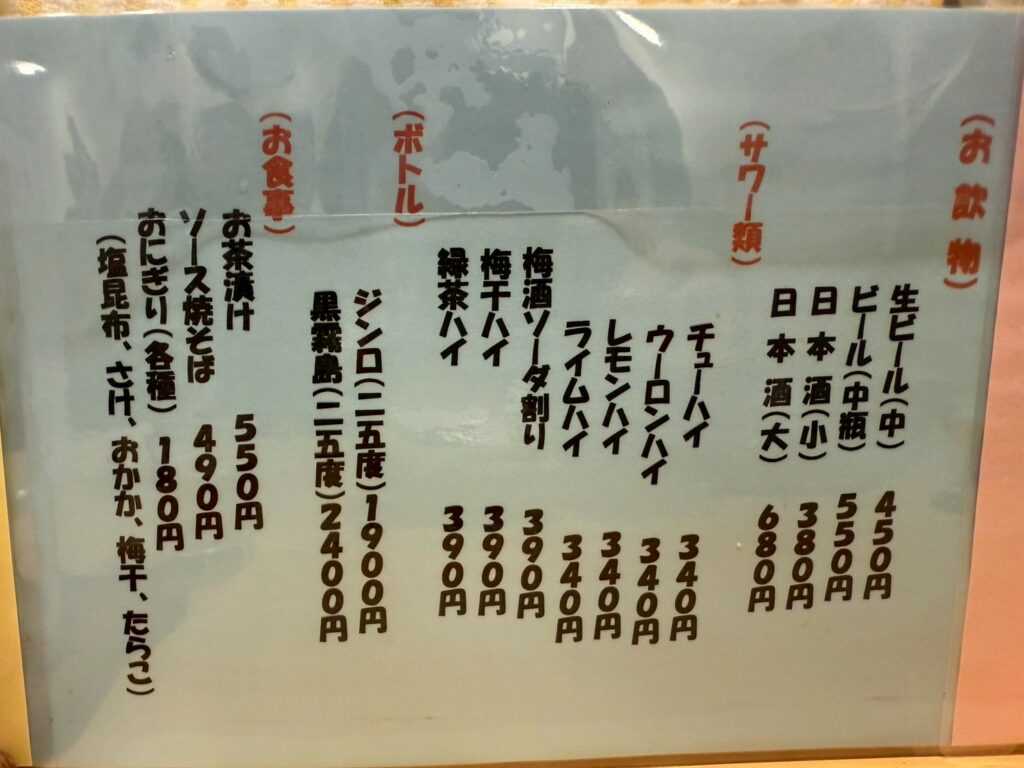 (お飲物)
生ビール(中) 450円
ビール(中瓶) 550円
日本酒(小) 380円
日本酒(大) 680円
(サワー類)
チューハイ 340円
ウーロンハイ 340円
レモンハイ 340円
ライムハイ 340円
梅酒ソーダ割り 390円
梅干ハイ 390円
緑茶ハイ 390円
(ボトル)
ジンロ(二五度)1900円
黒霧島(二五度)2400円
(お食事)
お茶漬け 550円
ソース焼そば 490円
おにぎり(各種) 180円
(塩昆布、さけ、おかか、梅干、たらこ)